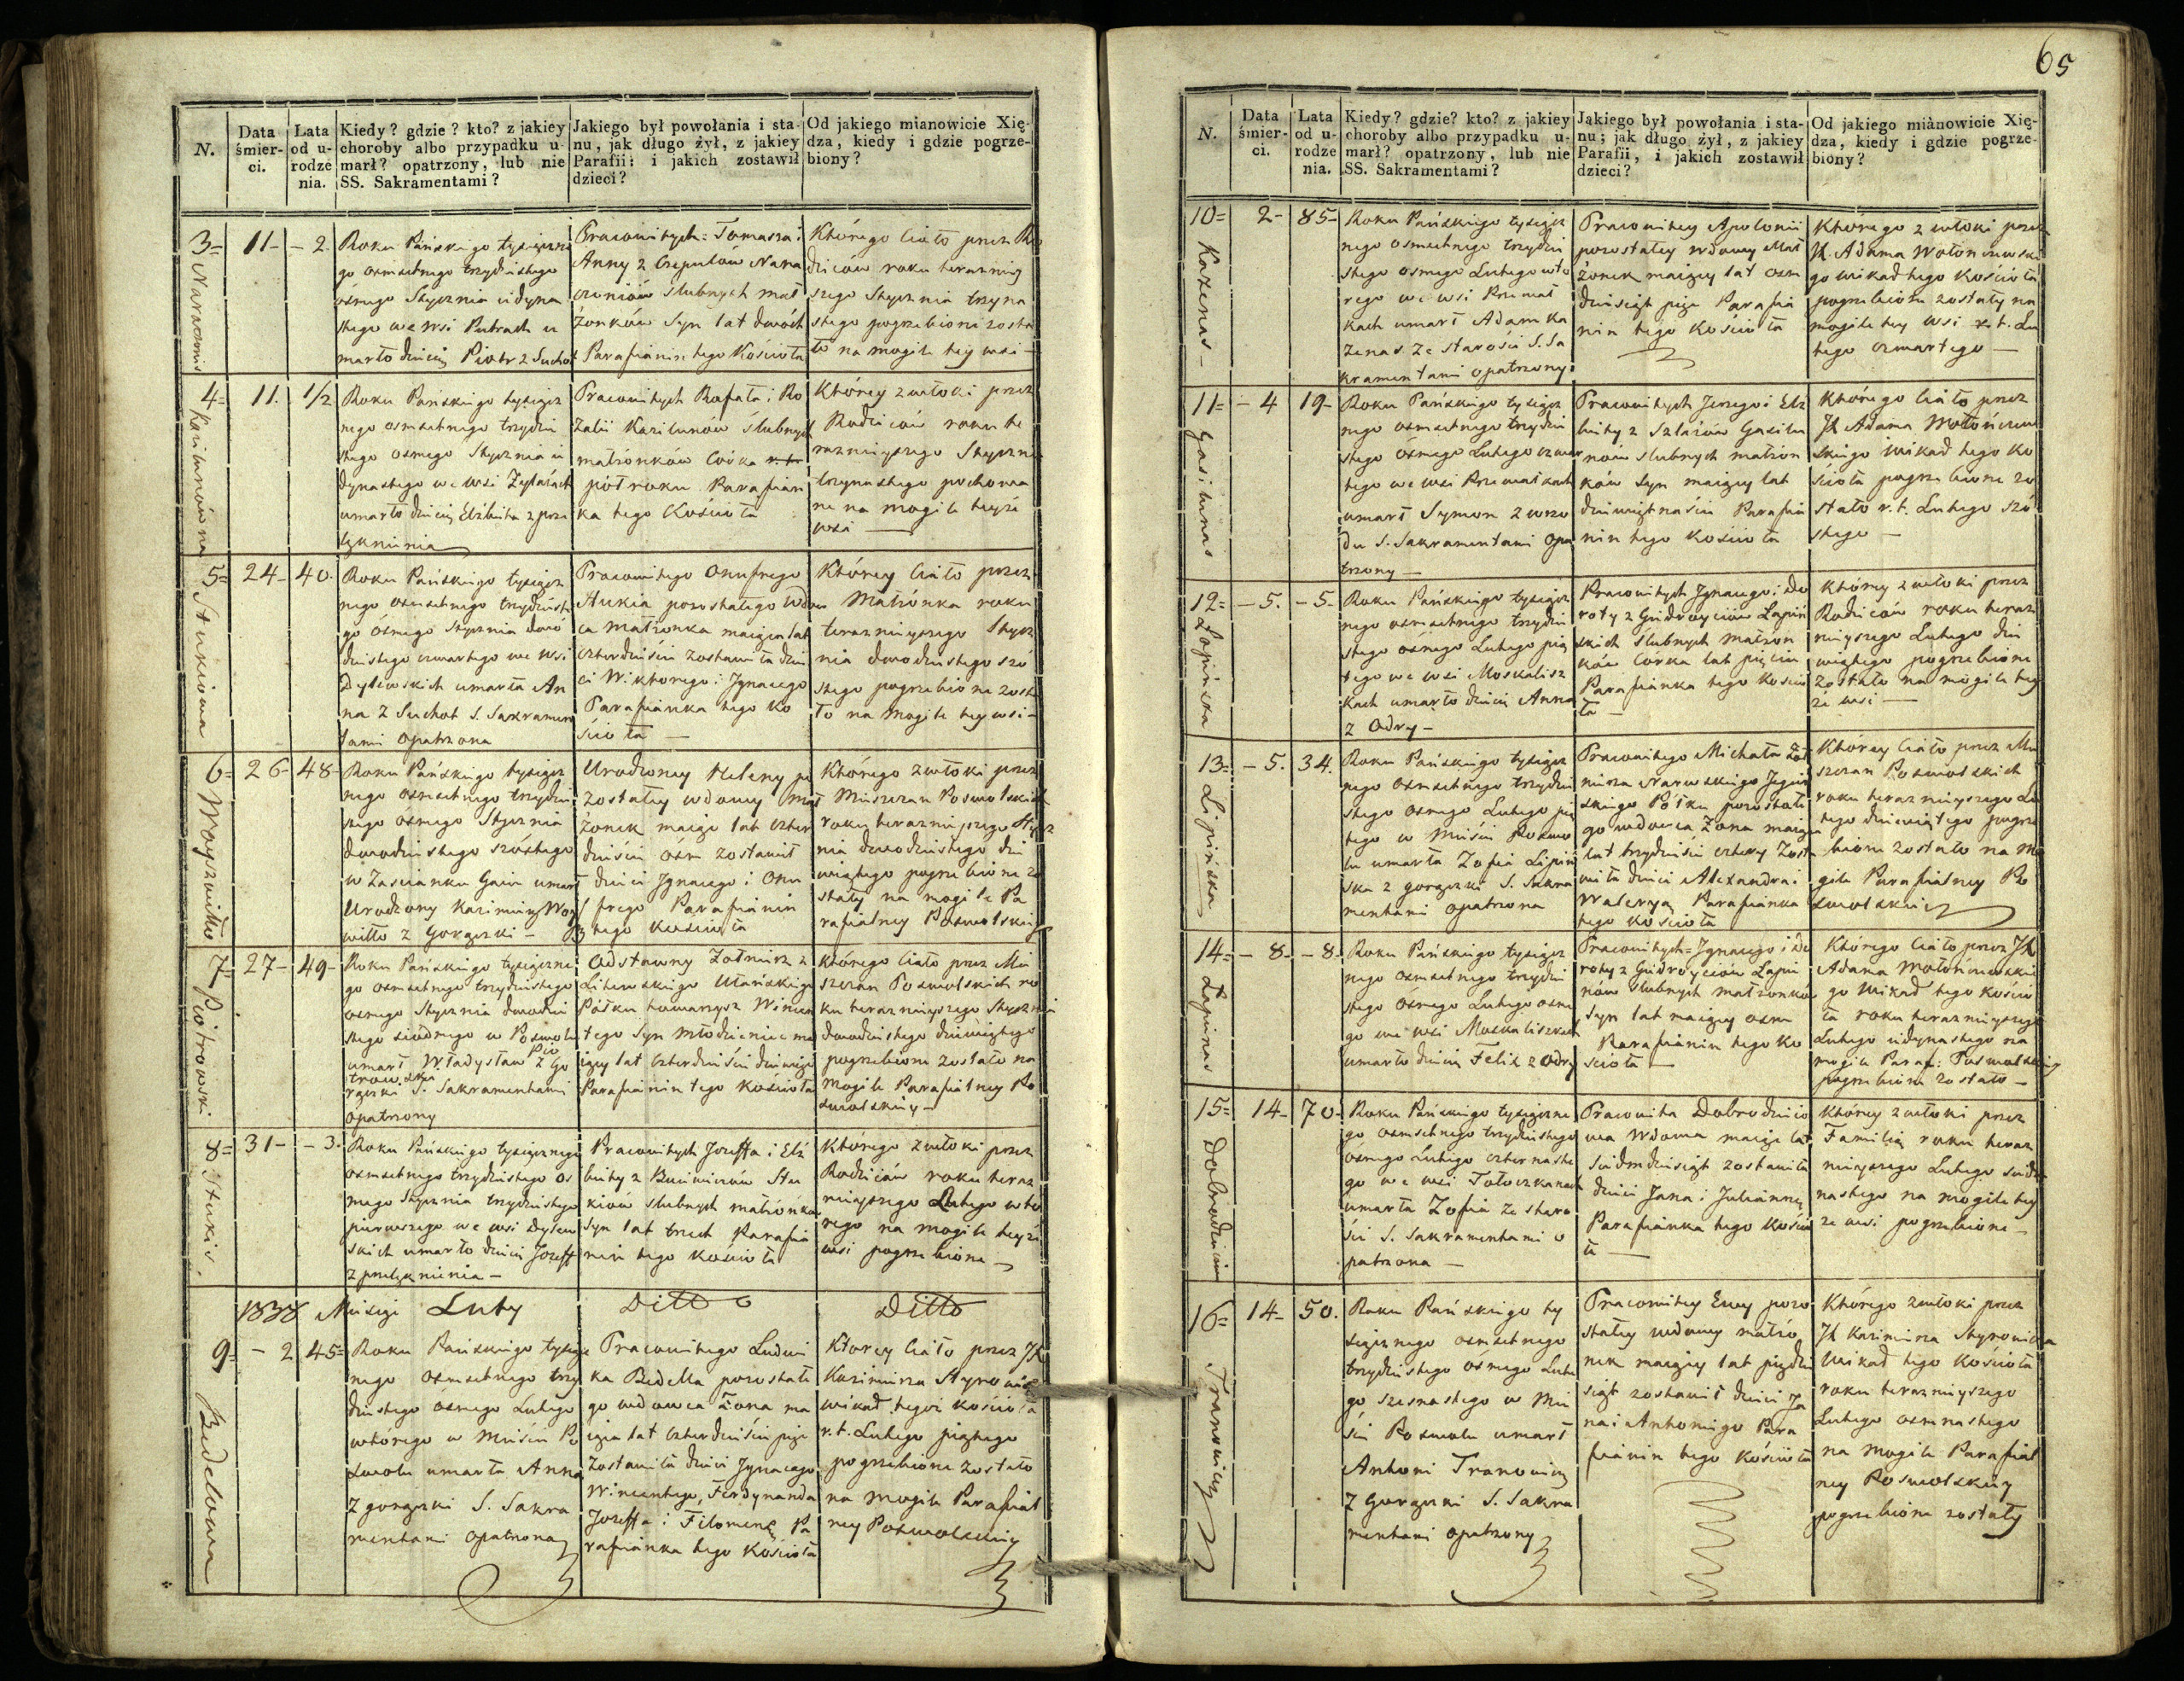 65
N.
Data śmier- ci.
Lata od u- rodze nia.
Kiedy? gdzie? kto? z jakiey
choroby albo przypadku u-
marł? opatrzony, lub nie
SS. Sakramentami?
Jakiego był powołania i sta-
nu, jak długo żył, z jakiey
Parafii: i jakich zostawił
dzieci?
Od jakiego mianowicie Xię-
dza, kiedy i gdzie pogrze-
biony?
3=
11-
- 2.
Roku Pańskiego tysiączne
go osmsetnego trzydziestego
ósmego Stycznia iedyna
stego we wsi Putrach u
marło dziecię Piotr z Suchot
Pracowitych: Tomasza i
Anny z Czepułów Nara
ślubnych mał
żonków Syn lat dwóch
Parafianin tego Kościoła
Którego Ciało przez Ro
dziców roku teraźniey
szego Stycznia trzyna
stego pogrzebione zosta
ło na mogile tey wsi -
4=
Kazilunówna
11.
1/2
Roku Pańskiego tysiącz
nego osmsetnego trzydzie
stego osmego Stycznia ie
dynastego we wsi Żylaiach
umarło dziecię Elżbieta z prze
lęknienia
Pracowitych Rafała i Ro
zalii Kazilunow ślubnych
małżonków Córka
półroku Parafian
ka tego Kościoła
Którey zwłoki przez
Rodziców roku te
raznieyszego Styczn
trzynastego pochowa
ne na mogile teyże
wsi
5=
Stukiowa
24-
40.
Roku Pańskiego tysiącz
nego osmsetnego trzydzieste
go ósmego Stycznia dwó
dziestego czwartego we wsi
Dylewskich umarła An
na z Suchot S. Sakramen
tami opatrzona
Pracowitego Onufrego
Stukia pozostałego wdow
ca Małżonka maiąca lat
czterdzieści zostawiła dzie
ci Wiktorego i Ignacego
Parafianka tego Ko
ścioła -
Którey Ciało przez
Małżonka roku
teraznieyszego Stycz
nia dwodziestego szó
stego pogrzebione zosta
ło na Mogile tey wsi -
6=
Woyszwiłło
26-
48-
Roku Pańskiego tysiącz
nego osmsetnego trzydzie
stego osmego Stycznia
dwodziestego szóstego
w Zascianku Gaiu umarł
Urodzony Kazimierz Woy
wiłło z Gorączki -
Urodzoney Heleny po
zostałey wdowy Mał
żonek maiąc lat czter
dzieści ośm zostawił
dzieci Ignacego i Onu
frego Parafianin
tego Kościoła
Którego zwłoki przez
Mieszczan Poswolskich
roku teraznieyszego Stycz
nia dwodziestego dzie
wiątego pogrzebione zo
stały na mogile Pa
rafialney Poswolskiey
7=
Piotrowski
27-
49-
Roku Pańskiego tysiączne
go osmsetnego trzydziestego
osmego Stycznia dwodzie
stego siódmego w Poswolu
umarł Władysław Pio
trowski z Go
rączki S. Sakramentami
opatrzony
Odstawny Żołnierz z
Litewskiego Ułańskiego
Półku towarzysz Wincen
tego Syn Młodzieniec ma
iący lat czterdzieści dziewięć
Parafianin tego Kościoła
Którego Ciało przez Mie
szczan Poswolskich ro
ku teraznieyszego Stycznia
dwodziestego dziewiątego
pogrzebione zostało na
Mogile Parafialney Po
swolskiey -
8=
Stukis.
31-
- 3.
Roku Pańskiego tysiącznego
osmsetnego trzydziestego os
mego Stycznia trzydziestego
pierwszego we wsi Dylew
skich umarło dziecię Jozeff
z przelęknienia -
Pracowitych Jozeffa i Elż
biety z Stu
kiów ślubnych małżonków
Syn lat trzech Parafia
nin tego Kościoła
Którego zwłoki przez
Rodziców roku teraz
nieyszego Lutego wto
rego na mogile teyże
wsi pogrzebione -
1838 Miesiąc Luty
Ditto
Ditto
9=
Bedelowa
- 2
45=
Roku Pańskiego tysiącz
nego osmsetnego trzy
dziestego ósmego Lutego
wtórego w Mieście Po
swolu umarła Anna
z gorączki S. Sakra
mentami opatrzona
Pracowitego Ludwi
ka Bedella pozostałe
go wdowca Żona ma
iąca lat czterdzieści pięć
zostawiła dzieci Ignacego
Wincentego, Ferdynanda
Jozeffa i Filomenę Pa
rafianka tego Kościoła
Ktorey Ciało przez JX
Kazimierza Styrowicza
wikad tegoż kościoła
r. t. Lutego piątego
pogrzebione zostało
na Mogile Parafial
ney Poswolskiey
N.
Data śmier- ci.
Lata od u- rodze nia.
Kiedy? gdzie? kto? z jakiey
choroby albo przypadku u-
marł? opatrzony, lub nie
SS. Sakramentami?
Jakiego był powołania i sta-
nu; jak długo żył, z jakiey
Parafii, i jakich zostawił
dzieci?
Od jakiego mianowicie Xię-
dza, kiedy i gdzie pogrze-
biony?
10=
Kazenas -
2-
85-
Roku Pańskiego tysiącz
nego osmsetnego trzydzie
stego osmego Lutego wto
rego we wsi Krzemał
kach umarł Adam Ka
zenas ze starości S. Sa
kramentami opatrzony
Pracowitey Apolonii
pozostałey wdowy Mał
żonek maiący lat osm
dziesiąt pięć Parafia
nin tego Kościoła
Którego zwłoki przez
JX. Adama Wołonczewski
go wikad tego Kościoła
pogrzebione zostały na
mogile tey wsi r. t. Lu
tego czwartego -
11=
Gasiunas
- 4
19-
Roku Pańskiego tysiącz
nego osmsetnego trzydzie
stego ósmego Lutego czwar
tego we wsi Krzemałkach
umarł Symon z wrzo
du S. Sakramentami opa
trzony -
Pracowitych Jerzego i Elż
biety z Szlażów Gasiu
now slubnych małżon
ków Syn maiący lat
dziewiętnaście Parafia
nin tego Kościoła
Którego Ciało przez
JX Adama Wołończew
skiego wikad tego Ko
ścioła pogrzebione zo
stało r. t. Lutego szó
stego -
12=
Łapinska
- 5.
- 5.
Roku Pańskiego tysiącz
nego osmsetnego trzydzie
stego ósmego Lutego pią
tego we wsi Moskalisz
kach umarło dziecię Anna
z Odry -
Pracowitych Ignacego i Do
roty z Giedroyciów Łapiń
skich ślubnych małżon
ków Corka lat pięciu
Parafianka tego Koscio
ła -
Którey zwłoki przez
Rodziców roku teraz
nieyszego Lutego dzie
wiątego pogrzebione
zostało na mogile tey
że wsi -
13=
Lipińska
- 5.
34.
Roku Pańskiego tysiącz
nego osmsetnego trzydzie
stego osmego Lutego pią
tego w Mieście Poswo
lu umarła Zofia Lipiń
ska z gorączki S. Sakra
mentami opatrzona
Pracowitego Michała Żoł
nierza Narwskiego Jegier
skiego Półku pozostałe
go wdowca Żona maiąca
lat trzydzieści cztery Zosta
wiła dzieci Alexandra i
Waleryą Parafianka
tego kościoła
Którey Ciało przez Mie
szczan Poswolskich
roku teraznieyszego Lu
tego dziewiątego pogrze
bione zostało na Mo
gile Parafialney Po
swolskiey
14=
Łapinas
- 8.
- 8.
Roku Pańskiego tysiącz
nego osmsetnego trzydzie
stego Ósmego Lutego osme
go we wsi Moskaliszkach
umarło dziecię Felix z Odry
Pracowitych= Ignacego i Do
roty z Giedroyciów Łapi
nów ślubnych małżonków
Syn lat maiący osm
Parafianin tego Ko
ścioła -
Którego Ciało przez JX
Adama Wołończewskie
go Wikad tego Kościo
ła roku teraznieyszego
Lutego iedynastego na
mogile Paraf: Poswolskiey
pogrzebione zostało -
15=
14-
70-
Roku Pańskiego tysiączne
go osmsetnego trzydziestego
ósmego Lutego czternaste
go we wsi Tołoczkanach
umarła Zofia ze staro
ści S. Sakramentami o
patrzona -
Pracowita Dobrodzieio
wa Wdowa maiąc lat
siedmdziesiąt zostawiła
dzieci Jana i Juliannę
Parafianka tego Kościo
ła -
Którey zwłoki przez
Familią roku teraz
nieyszego Lutego siedm
nastego na mogile tey
że wsi pogrzebione -
16=
Tranowicz
14-
50.
Roku Pańskiego ty
siącznego osmsetnego
trzydziestego ósmego Lute
go szesnastego w Mie
ści Poswolu umarł
Antoni Tranowicz
z Gorączki S. Sakra
mentami opatrzony
Pracowitey Ewy pozo
stałey wdowy małżo
nek maiący lat pięćdzie
siąt zostawił dzieci Ja
na i Antoniego Para
fianin tego Kościoła
Którego zwłoki przez
JX Kazimierza Styrowicza
Wikad tego Kościoła
roku teraznieyszego
Lutego osmnastego
na mogile Parafial
ney Poswolskiey
pogrzebione zostały